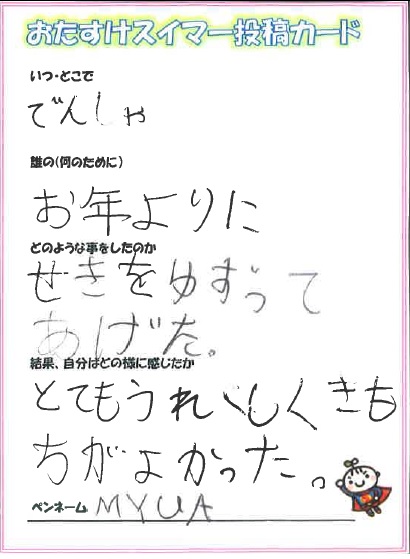 おたすけスイマー投稿カード
いつ・どこで
でんしゃ
誰の（何のために）
お年よりに
どのような事をしたのか
せきをゆずって
あげた。
結果、自分はどの様に感じたか
とてもうれしくきも
ちがよかった。
ペンネーム MYUA